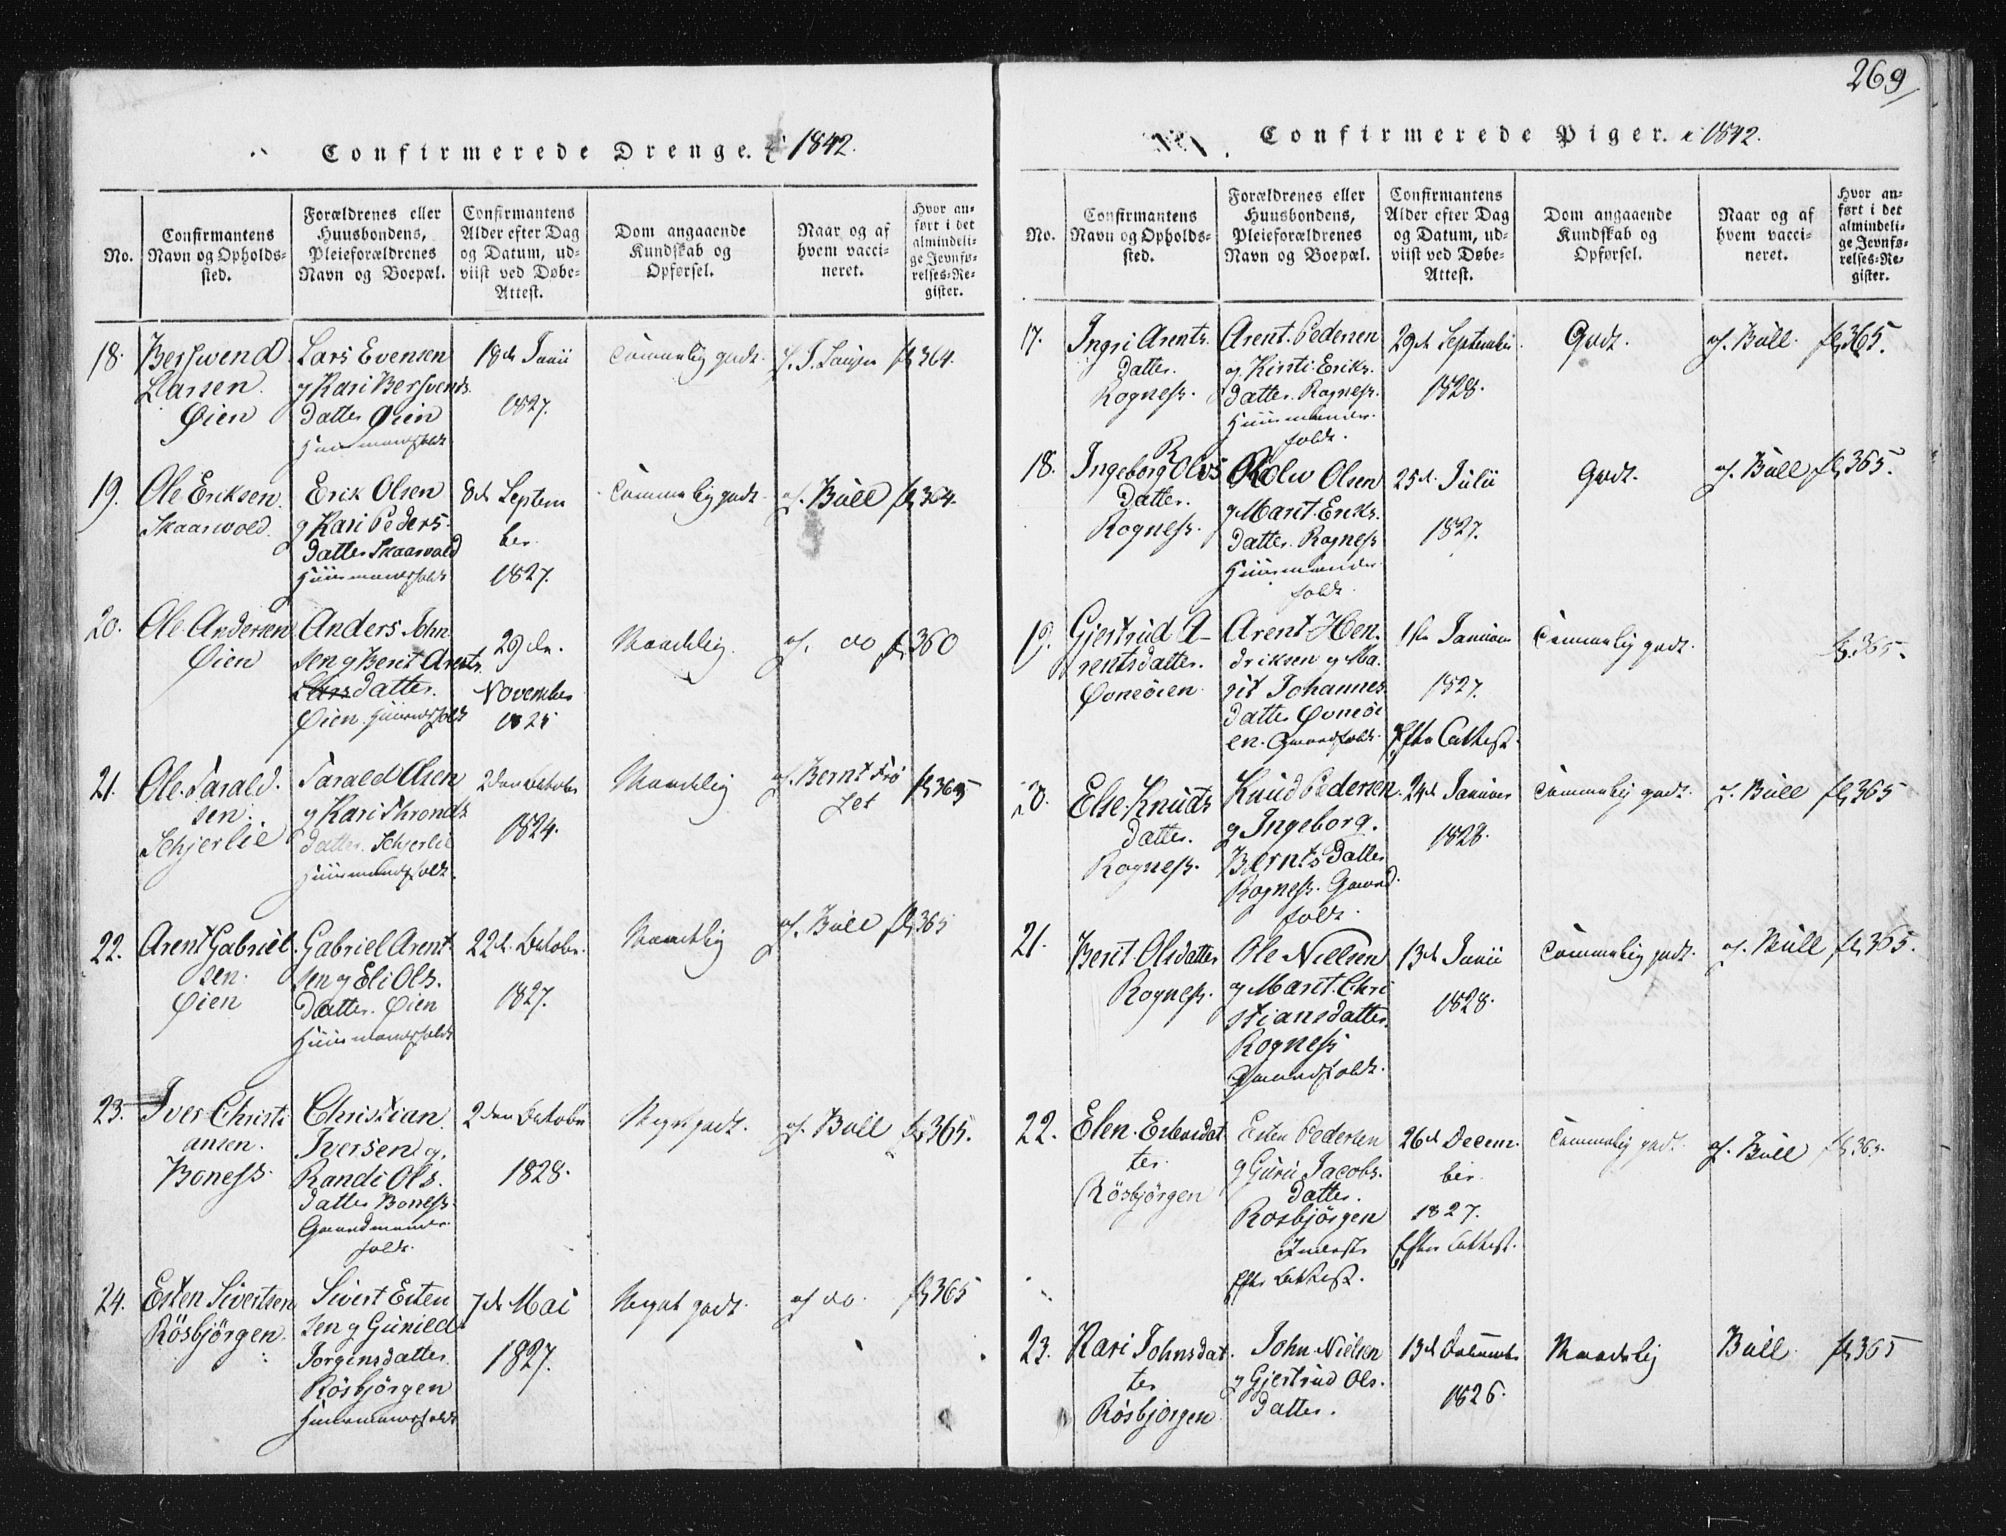 269
Confirmerede Drenge. 1842.
No.
Confirmantens Navn og Opholdssted.
Forældrenes eller Huusbondens, Pleieforældrenes Navn og Boepæl.
Confirmantens Alder efter Dag og Datum, udviist ved Døbe-Attest.
Dom angaaende Kundskab og Opførsel.
Naar og af hvem vaccineret.
Hvor anført i det almindelige Jevnførelses-Register.
18.
Bersvend
Larsen.
Øien
Lars Evensen
g Kari Bersvends
datter Øien
18de Junii
1827.
Temmelig godt.
fl 364.
19.
Ole Eriksen
Skaarvold.
Erik Olsen
g Kari Peders
datter Skaarvold
Huusmandsfolk
8de Septem
ber.
1827.
Temmelig godt.
af. Bull
fl 364.
20.
Ole Andersen
Øien
Anders John
sen g Berit Arents
Larsdatter.
Øien
29de
November
1825
Maadelig.
af. do
fl 360
21.
Ole Tarald.
sen.
Schjerlie
Tarald Olsen
g Kari Thronds
datter. Schjerlie
Huusmandsfolk.
2den Octobr
1824.
Maadelig
af. Bernt Frø
set
fl 363
22.
Arent Gabriel.
sen.
Øien
Gabriel Arent
sen g Eli Ols.
datter. Øien
Huusmandsfolk
22de Octobr.
1827.
Maadelig
af. Bull
fl 365
23.
Iver Christi
ansen.
Boness
Christian
Iversen g.
Randi Ols.
datter Boness.
Gaardmands
folk.
2den October
1828.
Meget godt.
af. Bull
fl 365.
24.
Esten Sivertsen
Røsbjørgen.
Sivert Esten
sen g Gunild
Jorgensdatter.
Røsbjørgen
Huusmandsfolk
7de Mai
1827.
Meget godt.
af do.
fl 365
Confirmerede Piger. 1842.
No.
Confirmantens Navn og Opholdssted.
Forældrenes eller Huusbondens, Pleieforældrenes Navn og Boepæl.
Confirmantens Alder efter Dag og Datum, udviist ved Døbe-Attest.
Dom angaaende Kundskab og Opførsel.
Naar og af hvem vaccineret.
Hvor anført i det almindelige Jevnførelses-Register.
17.
Ingri Arents
datter.
Rogness.
Arent Pedersen
g. Kirsti Eriks.
datter. Rogness.
Huusmands
folk.
29de September
1828.
Godt.
af. Bull.
fl 365.
18.
Ingeborg Olvs
datter.
Rogness.
Rolv Olsen
g Marit Eriks.
datter. Rogness
Huusmands
folk.
25de Julii
1827.
Godt.
af. Bull
fl 365.
19.
Gjertrud A-
rentsdatter.
Øvneøien
Arent Hen.
driksen g Ma.
rit Johannes
datter Øvneøi
en. Gaardfolk.
1ste Januar
1827.
Efter Attest.
Temmelig godt.
fl 365.
20.
Else Knuds
datter.
Rogness.
Knud Pedersen.
g Ingeborg.
Berntsdatter
Rogness. Gaard
folk.
24de Januar
1828.
Temmelig godt.
af. Bull
fl 365
21.
Berit Olsdatter
Rogness.
Ole Nielsen
g Marit Chri
stiansdatter.
Rogness
Gaardfolk.
13de Junii
1828.
Temmelig godt.
af. Bull
fl 365.
22.
Elen Estensdat
ter.
Røsbjørgen
Esten Pedersen
g Guru Jacobs.
datter.
Rosbjörgen
Inderster
Efter Attest.
26de Decem.
ber.
1827.
Efter Attest.
Temmelig godt.
af. Bull
fl 365.
23.
Kari Johnsdat
ter
Røsbjørgen
John Nielsen
g Gjertrud Ols.
datter.
13de
1826.
Maadelig
Bull.
fl 365